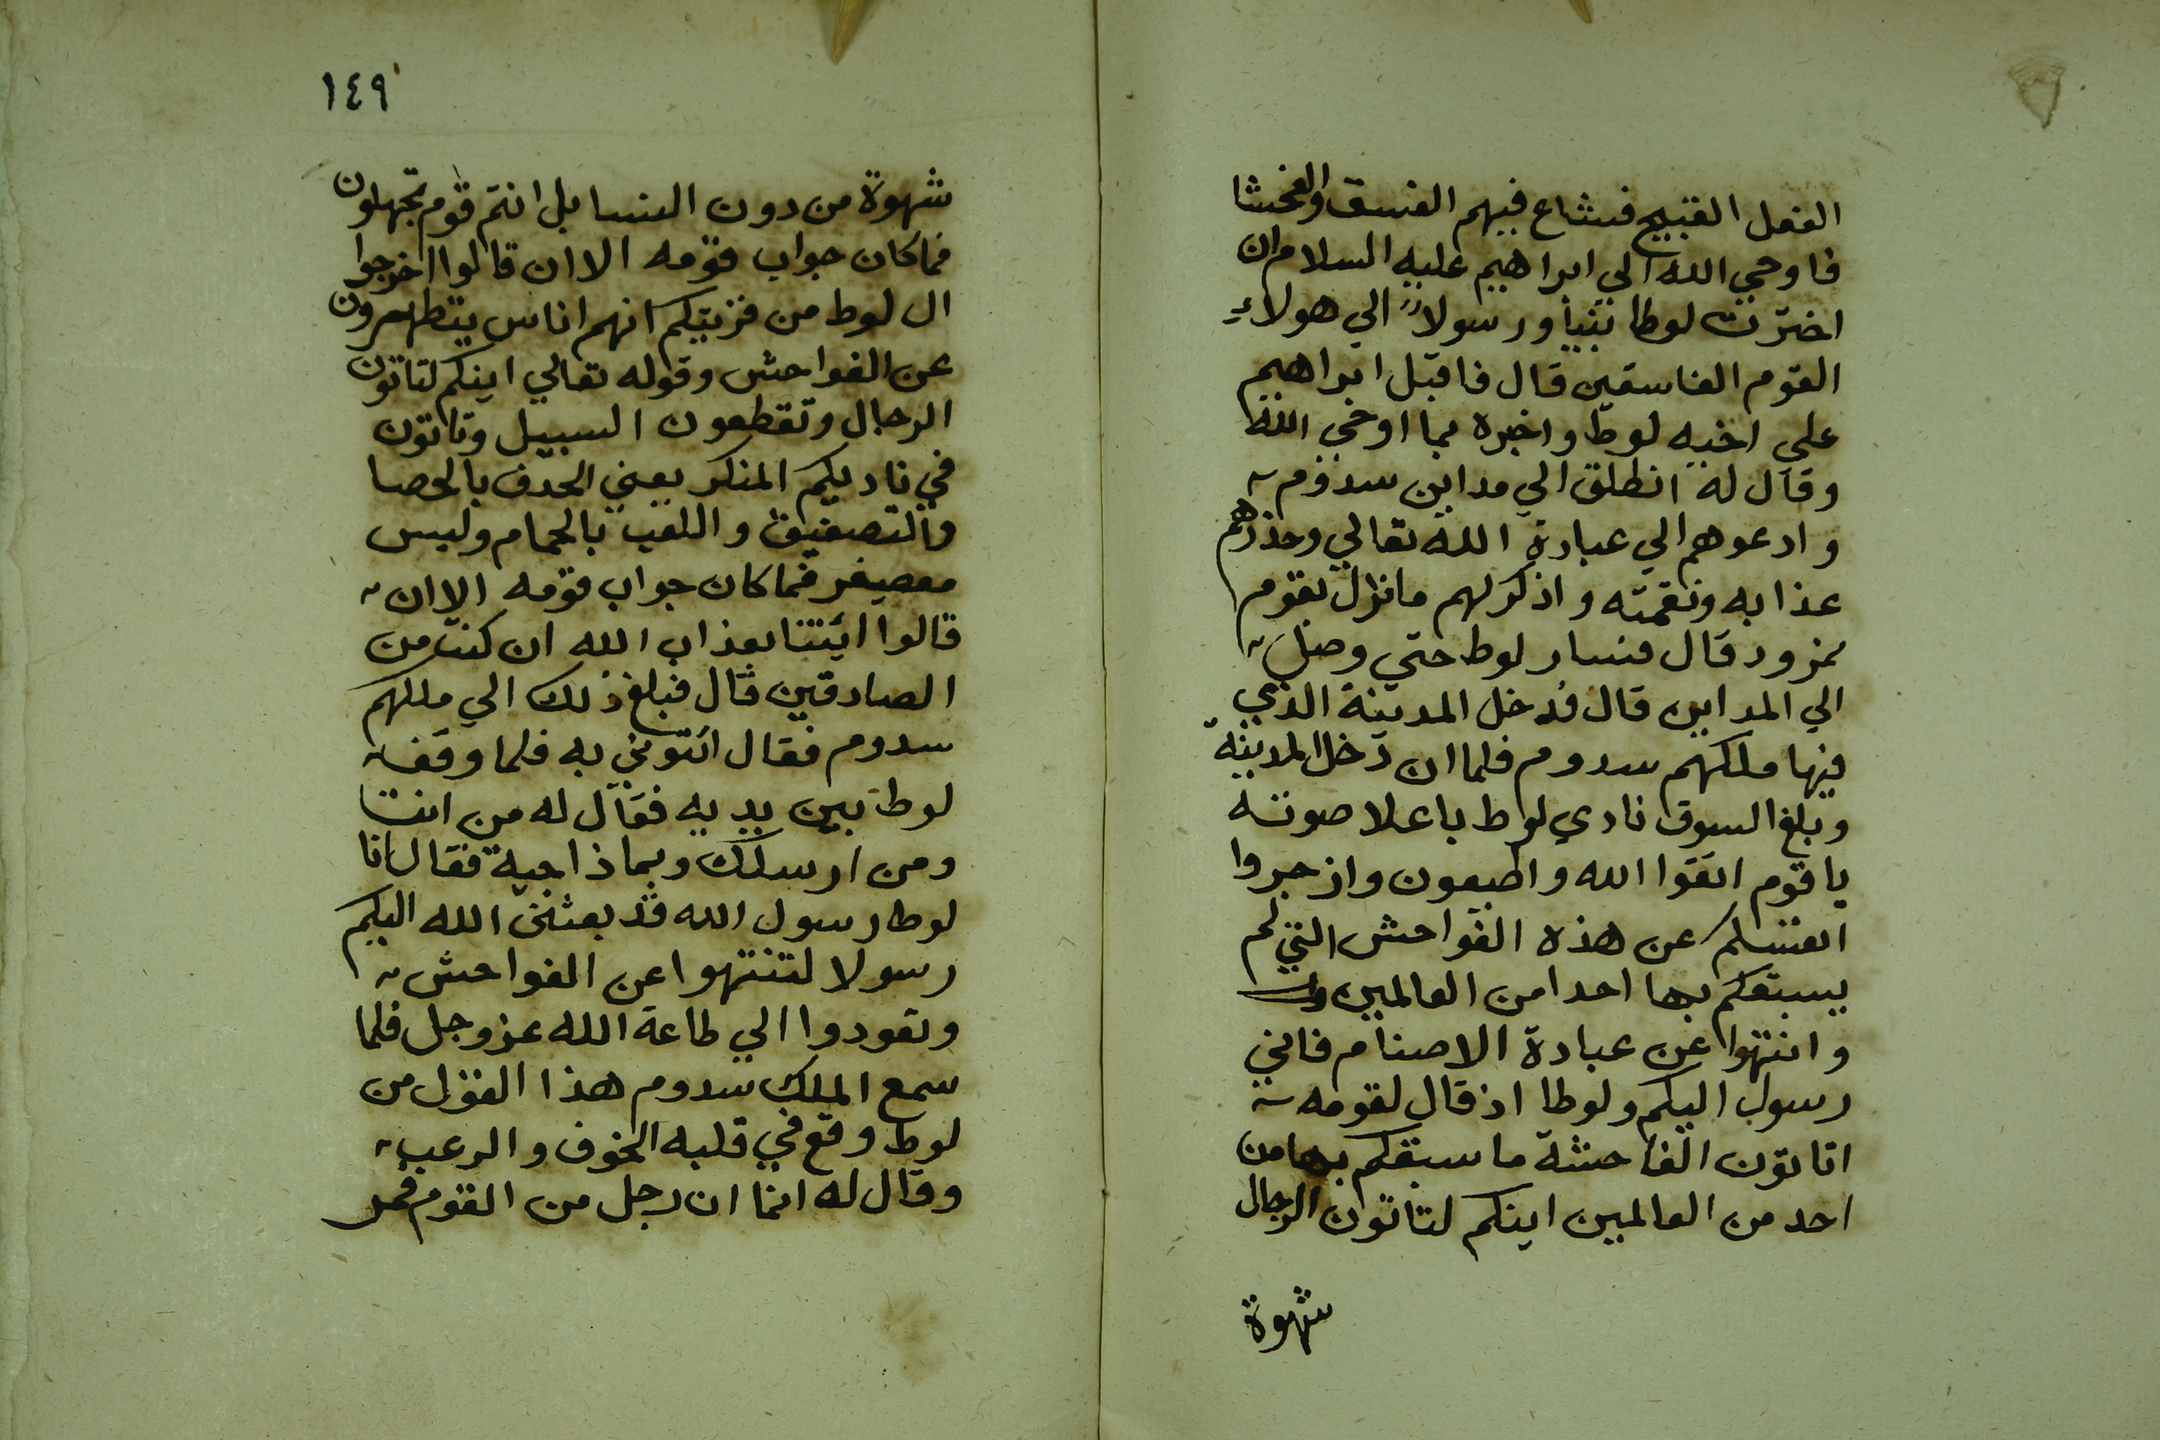 الفعل القبيح فشاع فيهم الفسق والفحشا
فاوحي الله الي ابراهيم عليه السلام ان
اخترت لوطا نبيا ورسولا الي هولاء
القوم الفاسقين قال فاقبل ابراهيم
علي اخيه لوط واخبره بما اوحي الله
وقال له انطلق الي مداين سدوم
وادعوهم الي عبادة الله تعالي وحذرهم
عذابه ونقمته واذكر لهم ما نزل بقوم
نمرود قال فسار لوط حتي وصل
الي المداين قال فدخل المدينة الذي
فيها ملكهم سدوم فلما ان دخل المدينة
وبلغ السوق نادي لوط باعلا صوته
يا قوم اتقوا الله واطيعون وازجروا
انفسكم عن هذه الفواحش التي لم
يسبقكم بها احدا من العالمين
وانتهوا عن عبادة الاصنام فاني
رسول اليكم ولوطا اذ قال لقومه
اتاتون الفاحشة ما سبقكم بها من
احد من العالمين اينكم لتاتون الرجال
شهوة
١٤٩
شهوة من دون النسا بل انتم قوم تجهلون
فما كان جواب قومه الا ان قالوا اخرجوا
ال لوط من قريتكم انهم اناس يتطهرون
عن الفواحش وقوله تعالي اينكم لتاتون
الرجال وتقطعون السبيل وتاتون
في ناديكم المنكر يعني الحدف بالحصا
والتصفيق واللعب بالحمام ولبس
معصيفر فما كان جواب قومه الا ان
قالوا ائتنا بعذاب الله ان كنت من
الصادقين قال فبلغ ذلك الي ملكهم
سدوم فقال ائتوني به فلما وقف
لوط بين يديه فقال له من انت
ومن ارسلك وبماذا جية فقال انا
لوط رسول الله قد بعثني الله اليكم
رسولا لتنتهوا عن الفواحش
وتعودوا الي طاعة الله عز وجل فلما
سمع الملك سدوم هذا القول من
لوط وقع في قلبه الخوف والرعب
وقال له انما ان رجل من القوم فمر